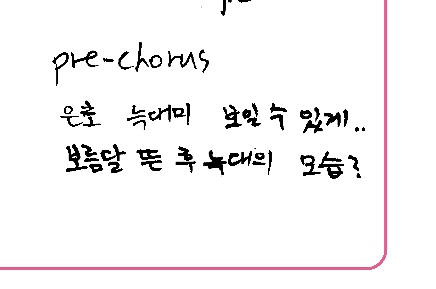 pre-chorus
은호 늑대미 보일 수 있게..
보름달 뜬 후 늑대의 모습?